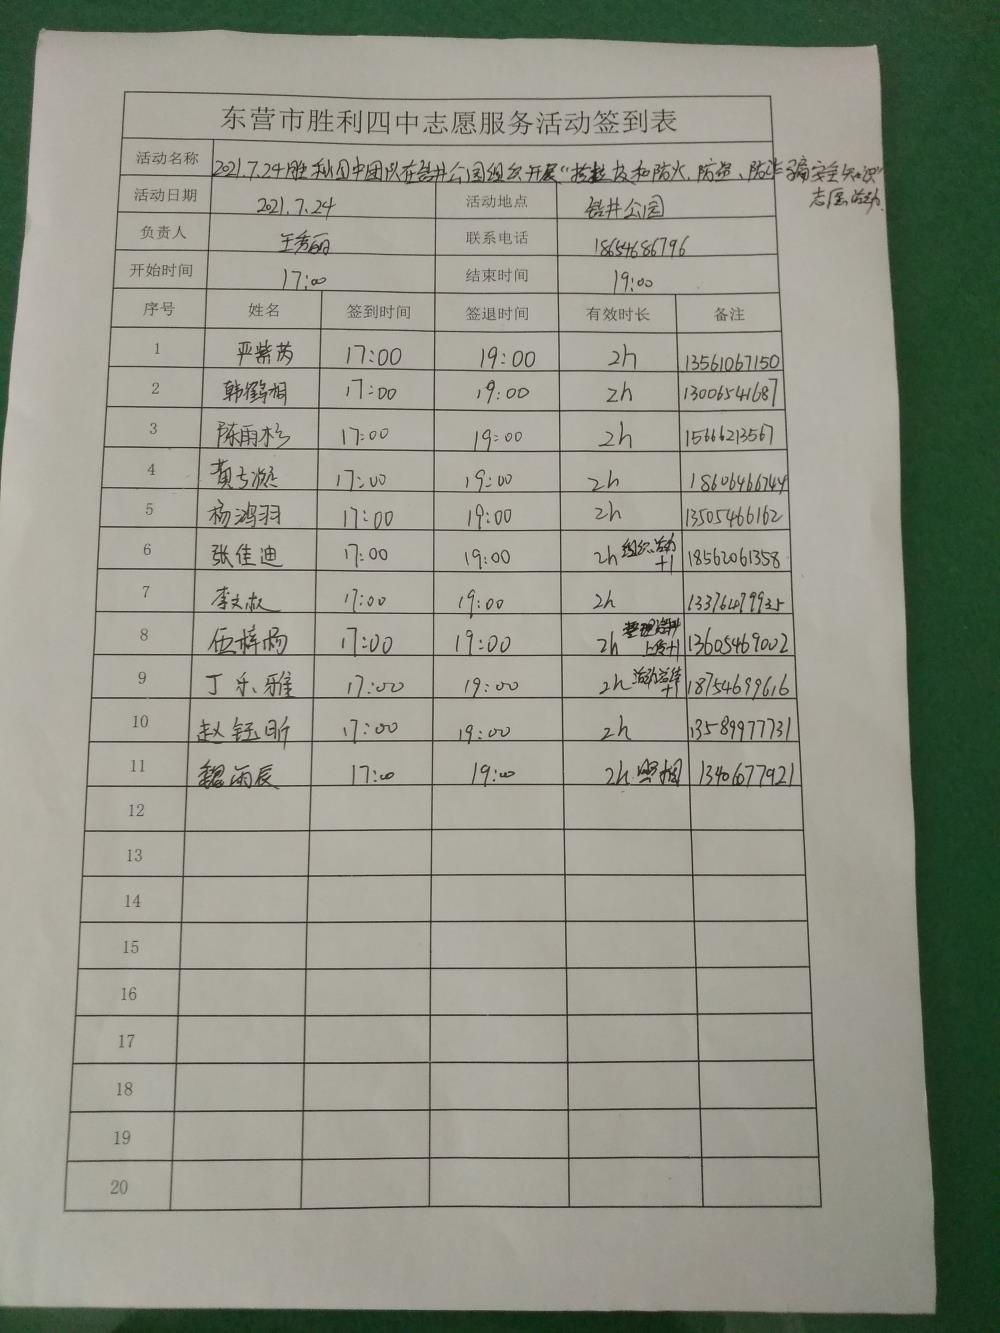 东营市胜利四中志愿服务活动签到表
活动名称 2021.7.24胜利四中团队在 井公园组织开展“ 技和防火、防盗、防诈骗安全知识”
志愿活动
活动日期 2021.7.24 活动地点 井公园
负责人 王秀丽 联系电话 18654686796
开始时间 17:00 结束时间 19:00
序号 姓名 签到时间 签退时间 有效时长 备注
1 严紫芮 17:00 19:00 2h 13561067150
2 韩鹤相 17:00 19:00 2h 13006541687
3 陈雨杉 17:00 19:00 2h 15666213567
4 黄 17:00 19:00 2h 18606466744
5 杨鸿羽 17:00 19:00 2h 13505466162
6 张佳迪 17:00 19:00 2h 组织活动+1 18562061358
7 李文 17:00 19:00 2h
8 伍梓杨 17:00 19:00 2h 整理资料上传+1 13605469002
9 丁乐雅 17:00 19:00 2h 活动总结+1 18754699616
10 赵钰昕 17:00 19:00 2h 13589977731
11 魏雨辰 17:00 19:00 2h 照相 1340677921
12
13
14
15
16
17
18
19
20